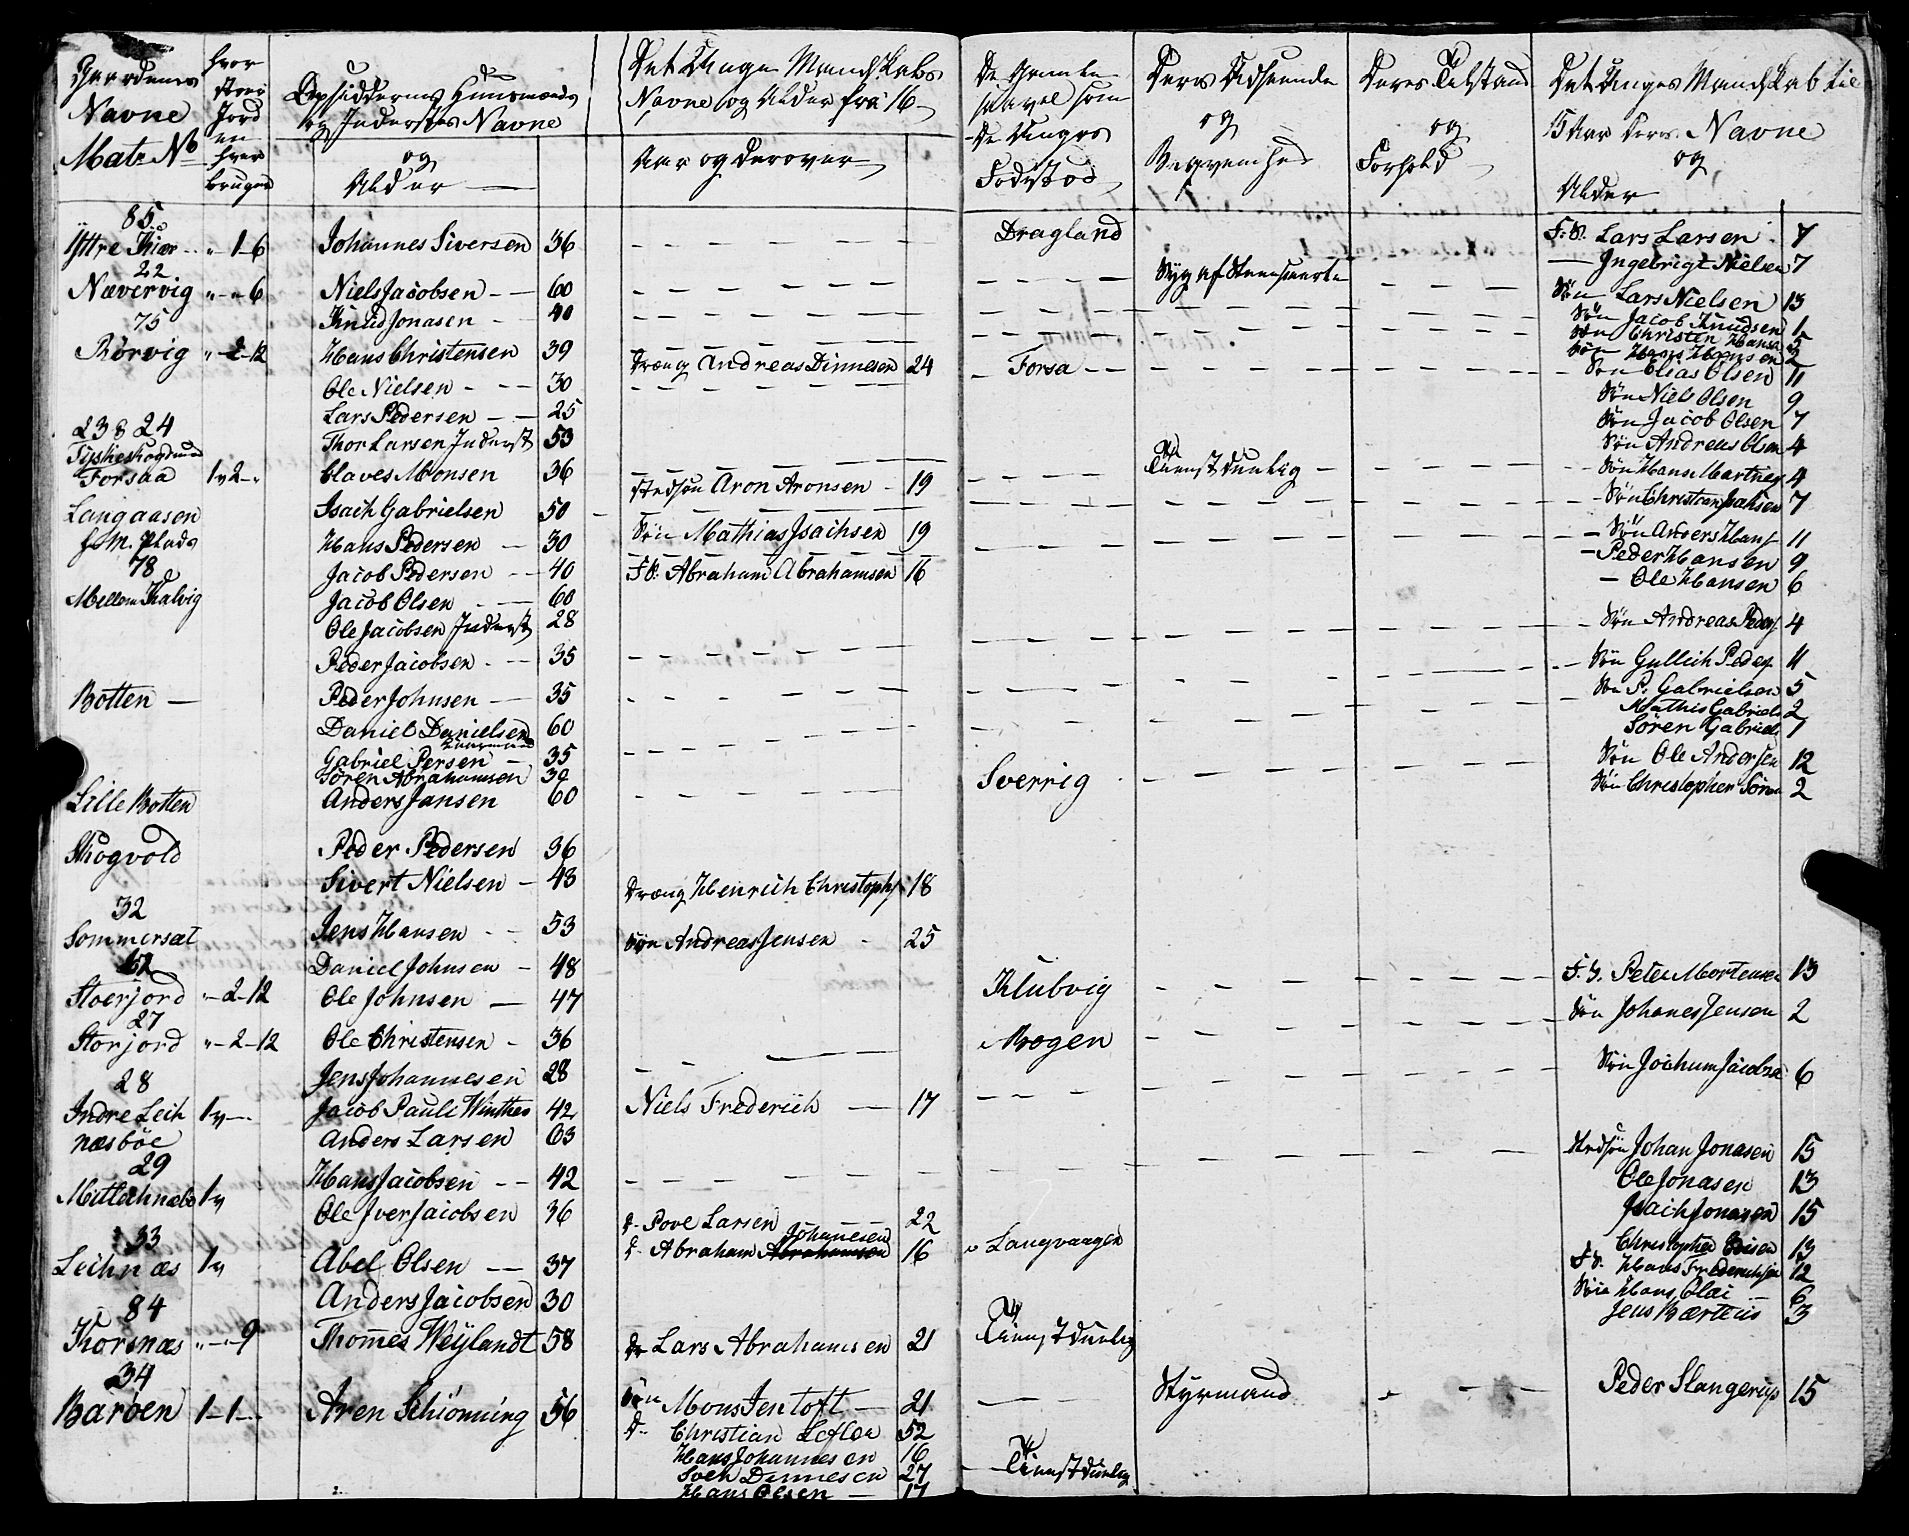 Gaardenes
Navne
Matr No
hvor
stor
Jord
en
hver
bruger
Opsiddernes Huusmænds
og Inderstes Navne
og
Alder
Det Unge Mandskabs
Navne og Alder fra 16
Aar og derover
De Gamle
saavel som
De Unges
Fødested
Deres Udseende
og
Beqvemhed
Deres Tilstand
og
Forhold
Det Unges Mandskab til
15 Aar deres Navne
og
Alder
85
Yttre Kiær " 1-6 Johannes Siversen 36 Dragland F.S. Lars Larsen 7
Ingebrigt Nielsen 7
22
Nævervig " - " 6 Niels Jacobsen 60 Syg af Steensmerte Søn Lars Nielsen 13
Knud Jonasen 40 Søn Jacob Knudsen 1
75
Rørvig " 2-12 Hans Christensen 39 Dræng Andreas Dinnesen 24 Forsa Søn Christen Hansen 5
Søn Hans Hansen 2
Ole Nielsen 30 Søn Elias Olsen 11
Lars Pedersen 25 Søn Niels Olsen 9
Thor Larsen Inderst 53 Søn Jacob Olsen 7
23 & 24
Forsaa 1 v 2 - " Claves Monsen 36 Stedsøn Aron Aronsen 19 Tienstdunlig Søn Andreas Olsen 4
Søn Hans Martines 4
Langaasen Isach Gabrielsen 50 Søn Mathias Isachsen 19 Søn Christian Isachsen 7
f. M. Plads Hans Pedersen 30 Søn Anders Hans 11
Peder Hansen 9
78
Mellem Kalvig Jacob Pedersen 40 F.S. Abraham Abrahamsen 16 Ole Hansen 6
Jacob Olsen 60
Ole Jacobsen Inderst 28 Søn Andreas Peders 4
Peder Jacobsen 35 Søn Gullich Peders 11
Botten Peder Johnsen 35 Søn P. Gabrielsen 5
Daniel Danielsen 60 Mathis Gabriels 2
Gabriel Persen 35 Søren Gabriels 1
Søren Abrahamsen 32 Søn Ole Andersen 12
Lille Botten Anders Jansen 60 Sverrig Søn Christopher Søren 2
Skogvold Peder Pedersen 36
Sivert Nielsen 43 Dræng Henrich Christoph 18
32
Sommersæt Jens Hansen 53 Søn Andreas Jensen 25
Daniel Johnsen 48
Stoerjord " 2-12 Ole Johnsen 47 Klubvig F.S. Peter Mortensen 13
27
Storjord " - 2-12 Ole Christensen 36 Krogen Søn Johanes Jensen 2
Jens Johannesen 28 Søn Jochum Jacobse 6
28
Indre Leih 1 v Jacob Pauli Winther 42 Niels Frederiich 17
næsbøe Anders Larsen 63 Stedsøn Johan Jonasen 15
29
1 v Hans Jacobsen 42 Ole Jonasen 13
Ole Iver Jacobsen 36 d. Pove Larsen 22 Isaich Jonasen 15
33 Johannesen
Leihnæs 1 v Abel Olsen 37 d. Abraham Abrahamsen 16 Langvaagen Christopher 13
Anders Jacobsen 30 F.S. Hans Frederichsen 12
84 Søn Hans Olai 6
Korsnæs " - 9 Thommes Weylandt 58 Dr Lars Abrahamsen 21 Tienstdunlig Jens Bærteus 3
34
Barøen 1-1- Aren Schiønning 56 Søn Mons Jentoft 21 Styrmand Peder Slangerup 15
D- Christian Lefler 52
Hans Johannesen 16
Soch Dannesen 27 Tienstdunlig
Hans Olsen 17